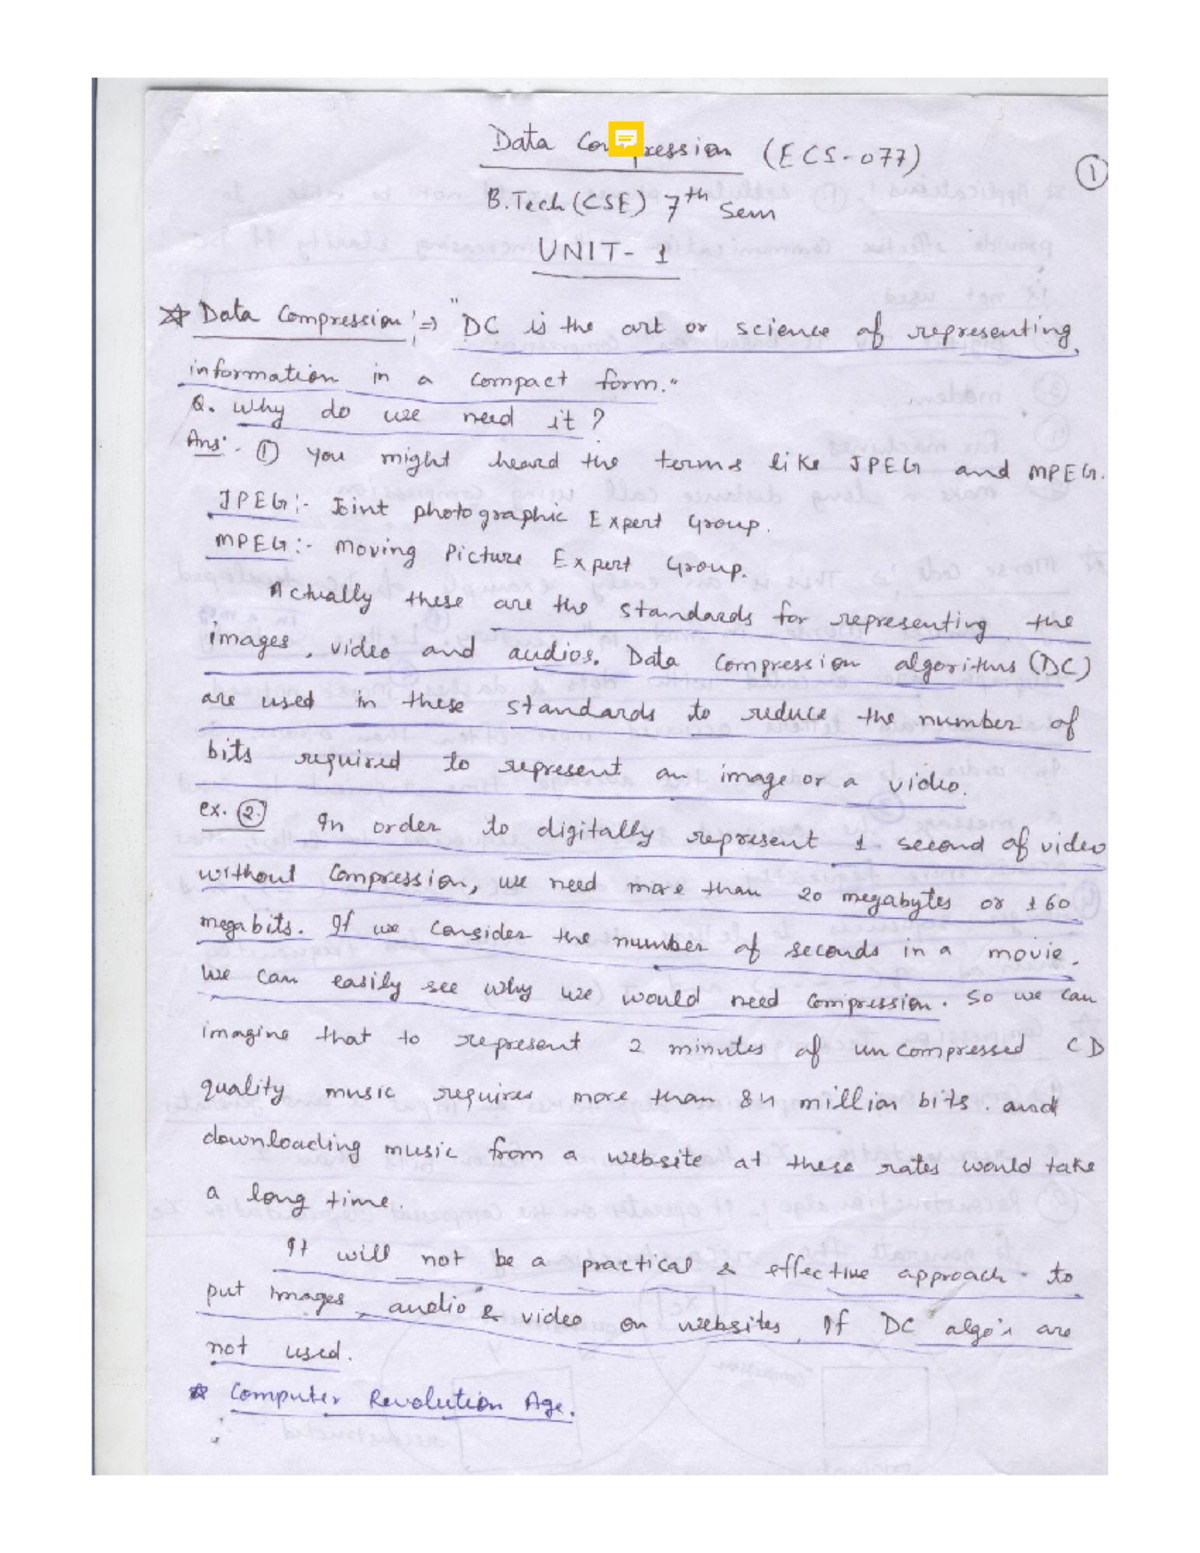 Data Compression (ECS-077)
1
B.Tech (CSE) 7th Sem
UNIT- 1
☆ Data Compression :⇒ "DC is the art or science of representing
information in a compact form."
Q. Why do we need it ?
Ans:- ① You might heard the terms like JPEG and MPEG.
JPEG:- Joint photographic Expert Group.
MPEG:- Moving Picture Expert Group.
Actually these are the standards for representing the
images, video and audios. Data Compression algorithms (DC)
are used in these standards to reduce the number of
bits required to represent an image or a video.
ex. ② In order to digitally represent 1 second of video
without Compression, we need more than 20 megabytes or 160
megabits. If we consider the number of seconds in a movie.
We can easily see why we would need Compression. So we can
imagine that to represent 2 minutes of uncompressed CD
quality music requires more than 84 million bits. and
downloading music from a website at these rates would take
a long time.
It will not be a practical & effective approach to
put Images, audio & video on websites, If DC algo's are
not used.
☆ Computer Revolution Age.